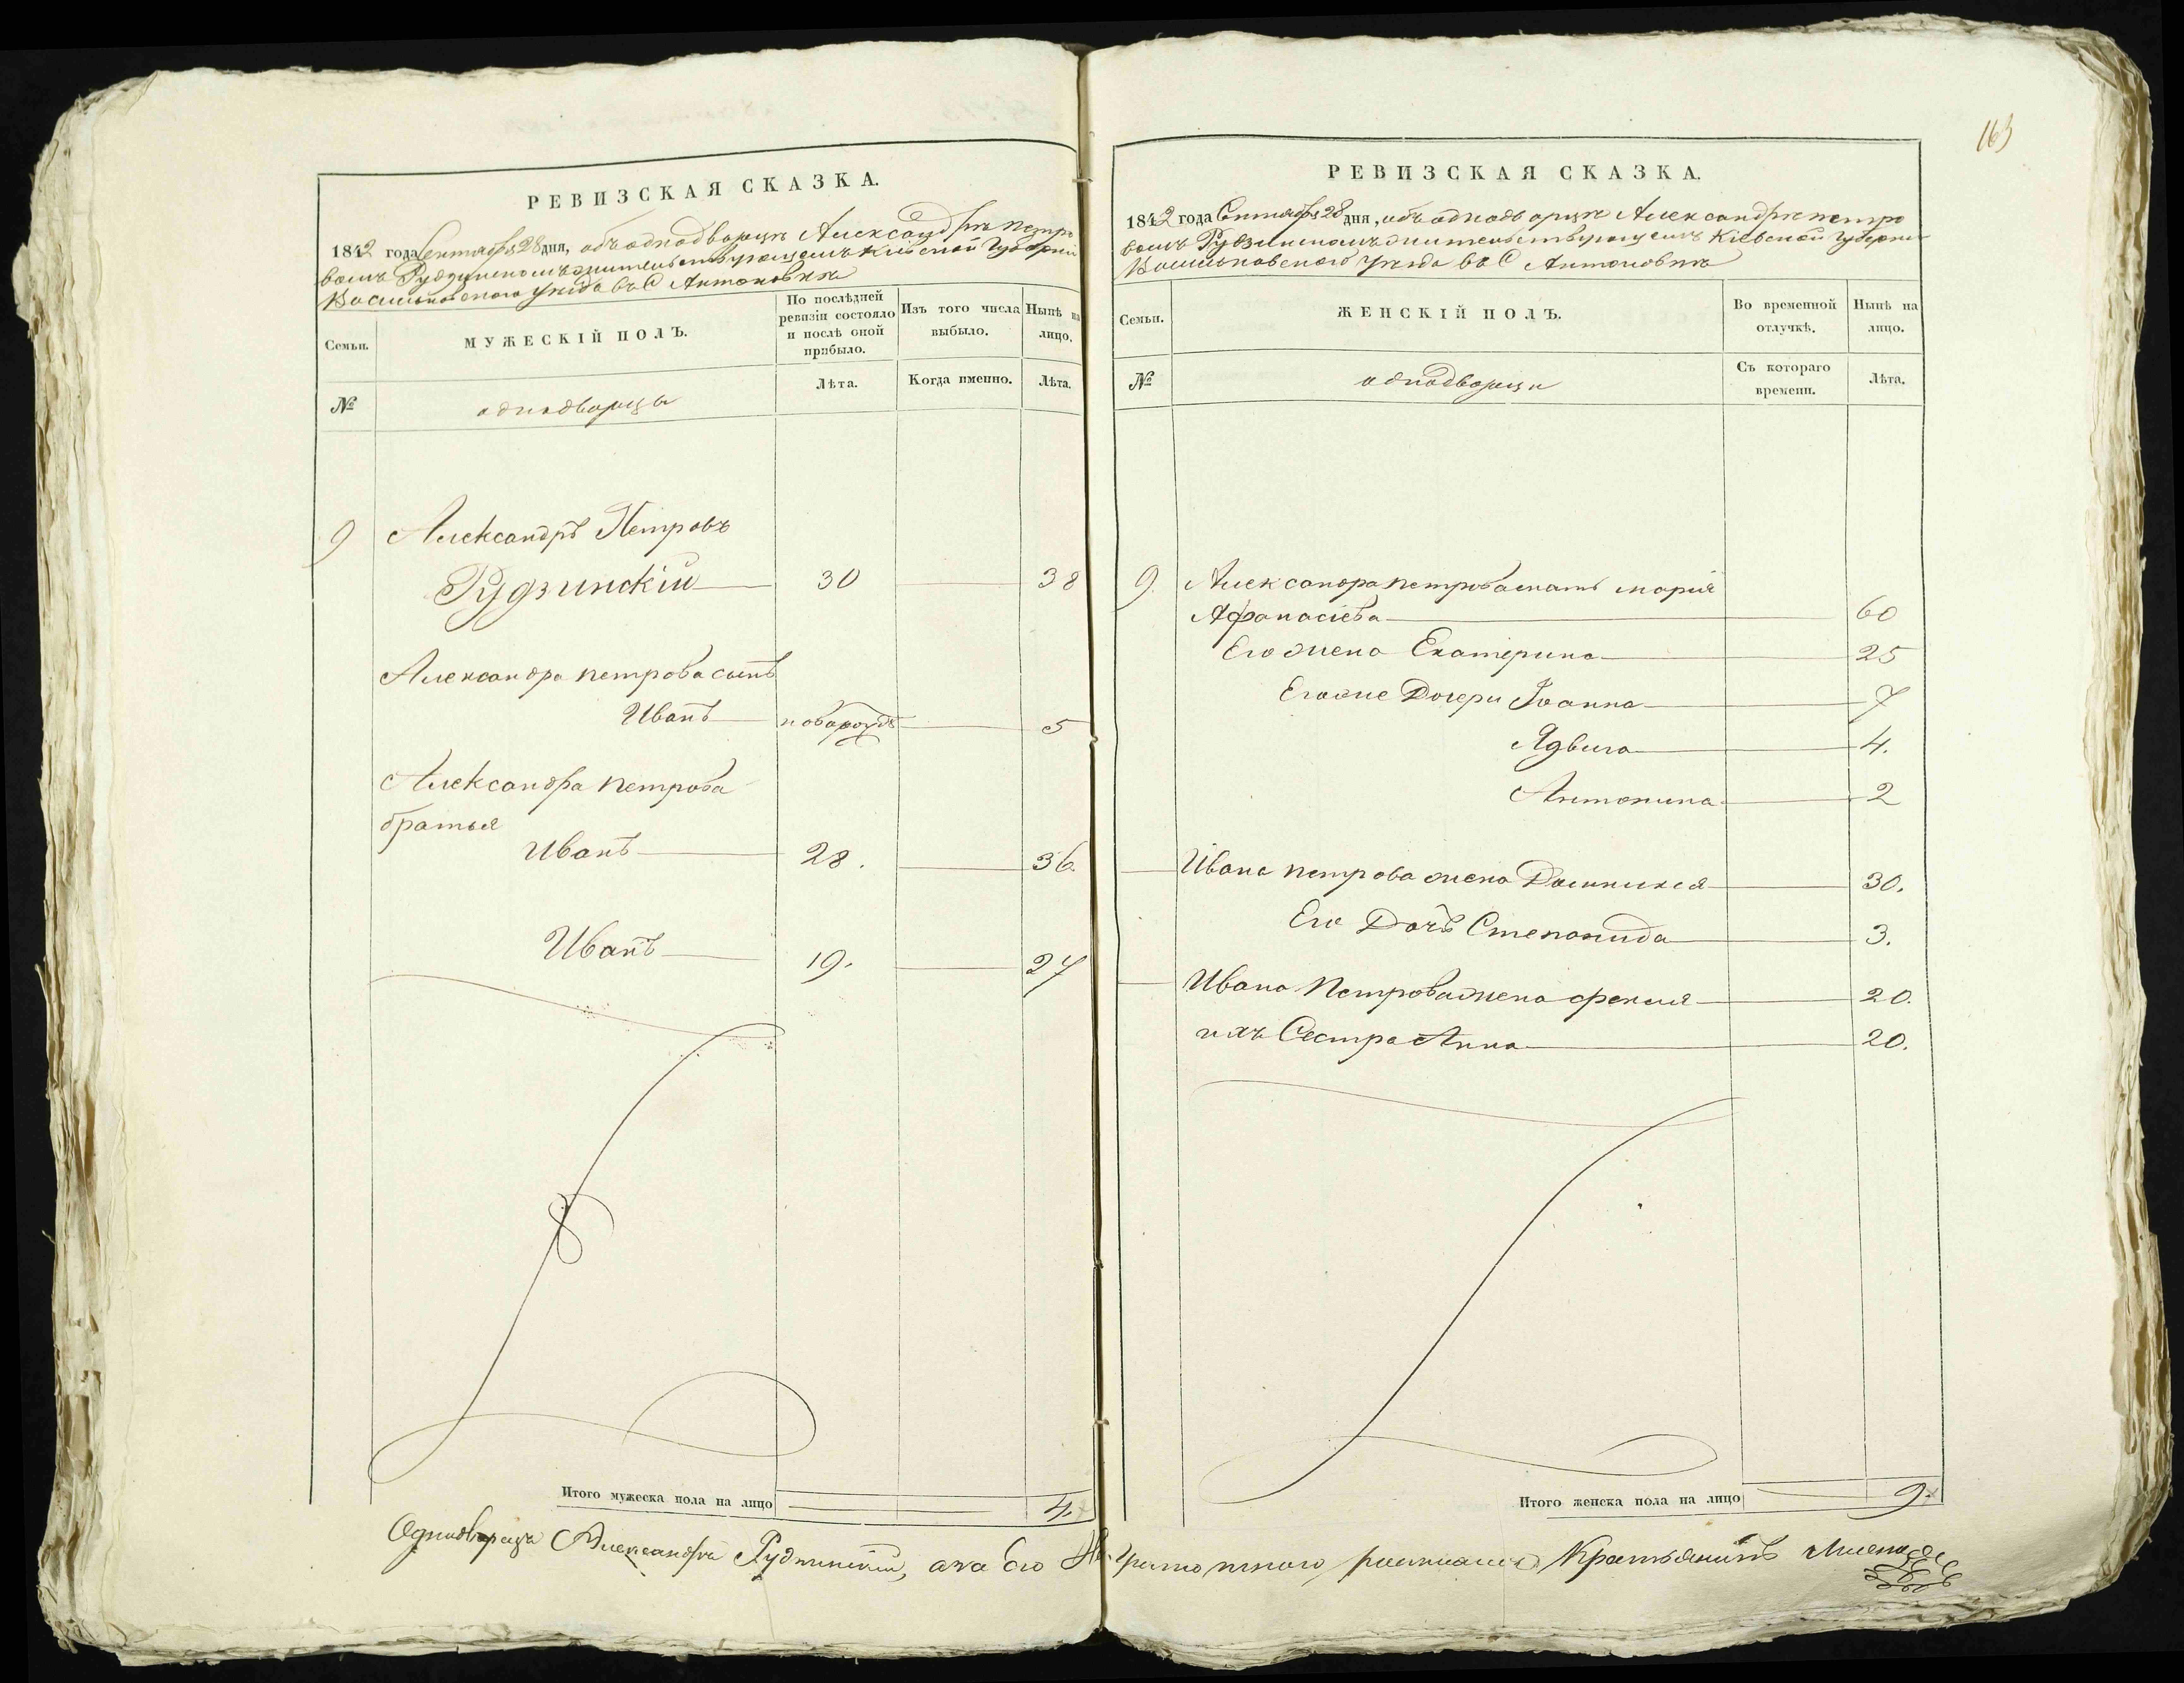 РЕВИЗСКАЯ СКАЗКА.
1842 года Сентября 28 дня, объ однодворцѣ Александрѣ Петро
вомъ Рудзинскомъ жительствующемъ Кіевской Губерніи
Васильковскаго уѣзда въ С Антоновкѣ
Семьи.
МУЖЕСКІЙ ПОЛЪ.
По послѣдней
ревизіи состояло
и послѣ оной
прибыло.
Изъ того числа
выбыло.
Нынѣ на
лицо.
№
однодворцы
Лѣта.
Когда именно.
Лѣта.
9 Александръ Петровъ
Рудзинскій 30 38
Александра Петрова сынъ
Иванъ новорожд 5
Александра Петрова
братья
Иванъ 28. 36.
Иванъ 19. 27
Итого мужеска пола на лицо 4.
163
РЕВИЗСКАЯ СКАЗКА.
1842 года Сентября 28 дня, объ однодворцѣ Александрѣ Петро
вомъ Рудзинскомъ жительствующемъ Кіевской Губерніи
Васильковскаго уѣзда въ С Антоновкѣ
Семьи.
ЖЕНСКІЙ ПОЛЪ.
Во временной
отлучкѣ.
Нынѣ на
лицо.
№
однодворци
Съ котораго
времени.
Лѣта.
9. Александра Петрова мать Марія
Афанасіева 60
Его жена Екатерина 25
Его же Дочери Іоанна 7
Ядвига 4.
Антонина 2
Ивана Петрова жена Домникія 30.
Его Дочь Степанида 3.
Ивана Петрова жена Фекла 20.
ихъ Сестра Анна 20.
Итого женска пола на лицо 9.
Однодворецъ Александръ Рудзинскій, а за его росписался Крестьянинъ